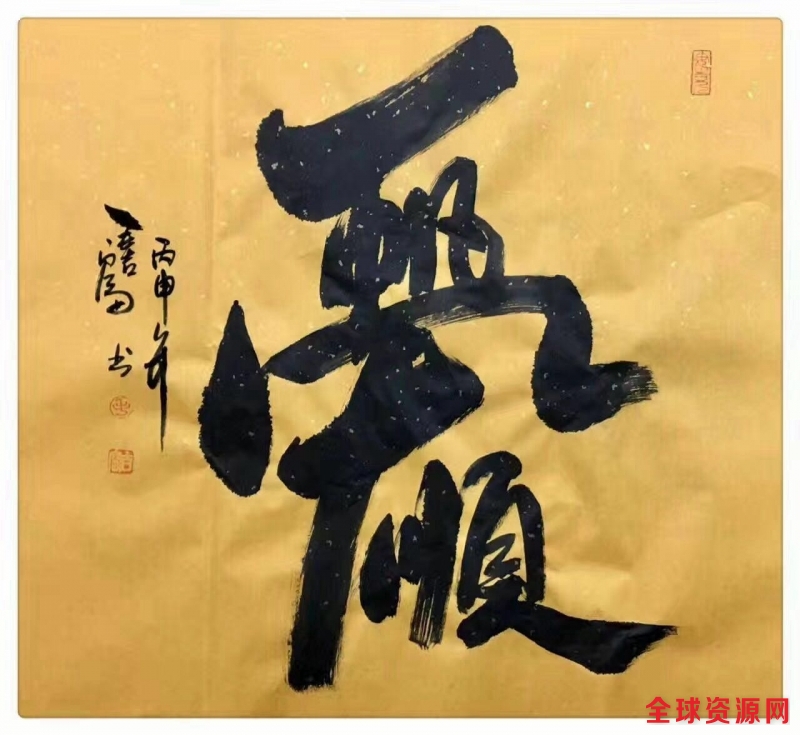 一帆風順
丙申年
书
全球资源网